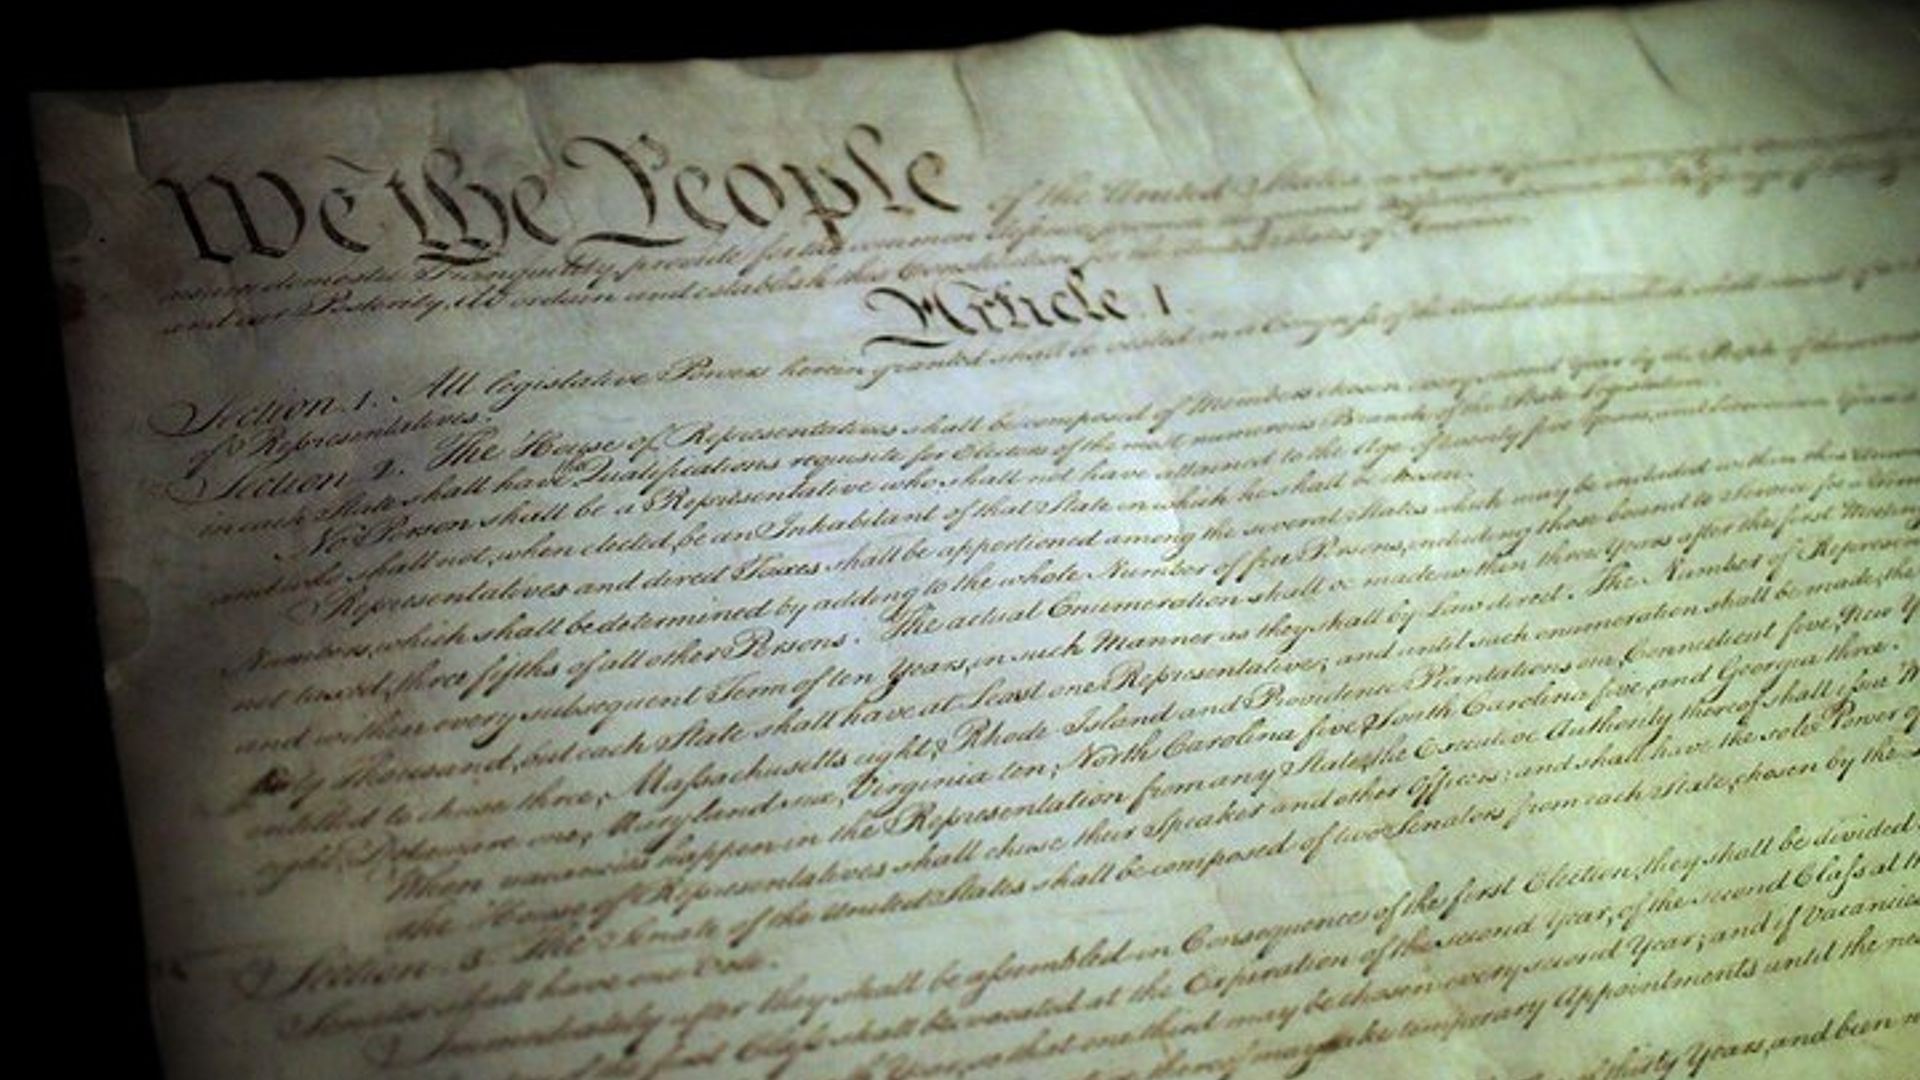 We the People of the United States
domestic Tranquility, provide for the common
and our Posterity, do ordain and establish this Constitution for the United States of America
Article. I.
Section. 1. All legislative Powers herein granted shall be vested in a Congress of the United States, which shall consist of a
of Representatives.
Section. 2. The House of Representatives shall be composed of Members chosen every second Year by the People of the several
in each State shall have the Qualifications requisite for Electors of the most numerous Branch of the State Legislature.
No Person shall be a Representative who shall not have attained to the Age of twenty five Years, and been seven Years
and who shall not, when elected, be an Inhabitant of that State in which he shall be chosen.
Representatives and direct Taxes shall be apportioned among the several States which may be included within this Union
Numbers, which shall be determined by adding to the whole Number of free Persons, including those bound to Service for a Term
not taxed, three fifths of all other Persons. The actual Enumeration shall be made within three Years after the first Meeting
and within every subsequent Term of ten Years, in such Manner as they shall by Law direct. The Number of
thirty Thousand, but each State shall have at Least one Representative; and until such enumeration shall be made, the
entitled to chuse three, Massachusetts eight, Rhode Island and Providence Plantations one, Connecticut five, New
eight, Delaware one, Maryland six, Virginia ten, North Carolina five, South Carolina five, and Georgia three.
When vacancies happen in the Representation from any State, the Executive Authority thereof shall issue
The House of Representatives shall chuse their Speaker and other Officers; and shall have the sole Power of
Section. 3. The Senate of the United States shall be composed of two Senators from each State, chosen by the
Senator shall have one Vote.
Immediately after they shall be assembled in Consequence of the first Election, they shall be divided
of the first Class shall be vacated at the Expiration of the second Year, of the second Class at the
Year, so that one third may be chosen every second Year; and if Vacancies
thereof may make temporary Appointments until the
of thirty Years, and been